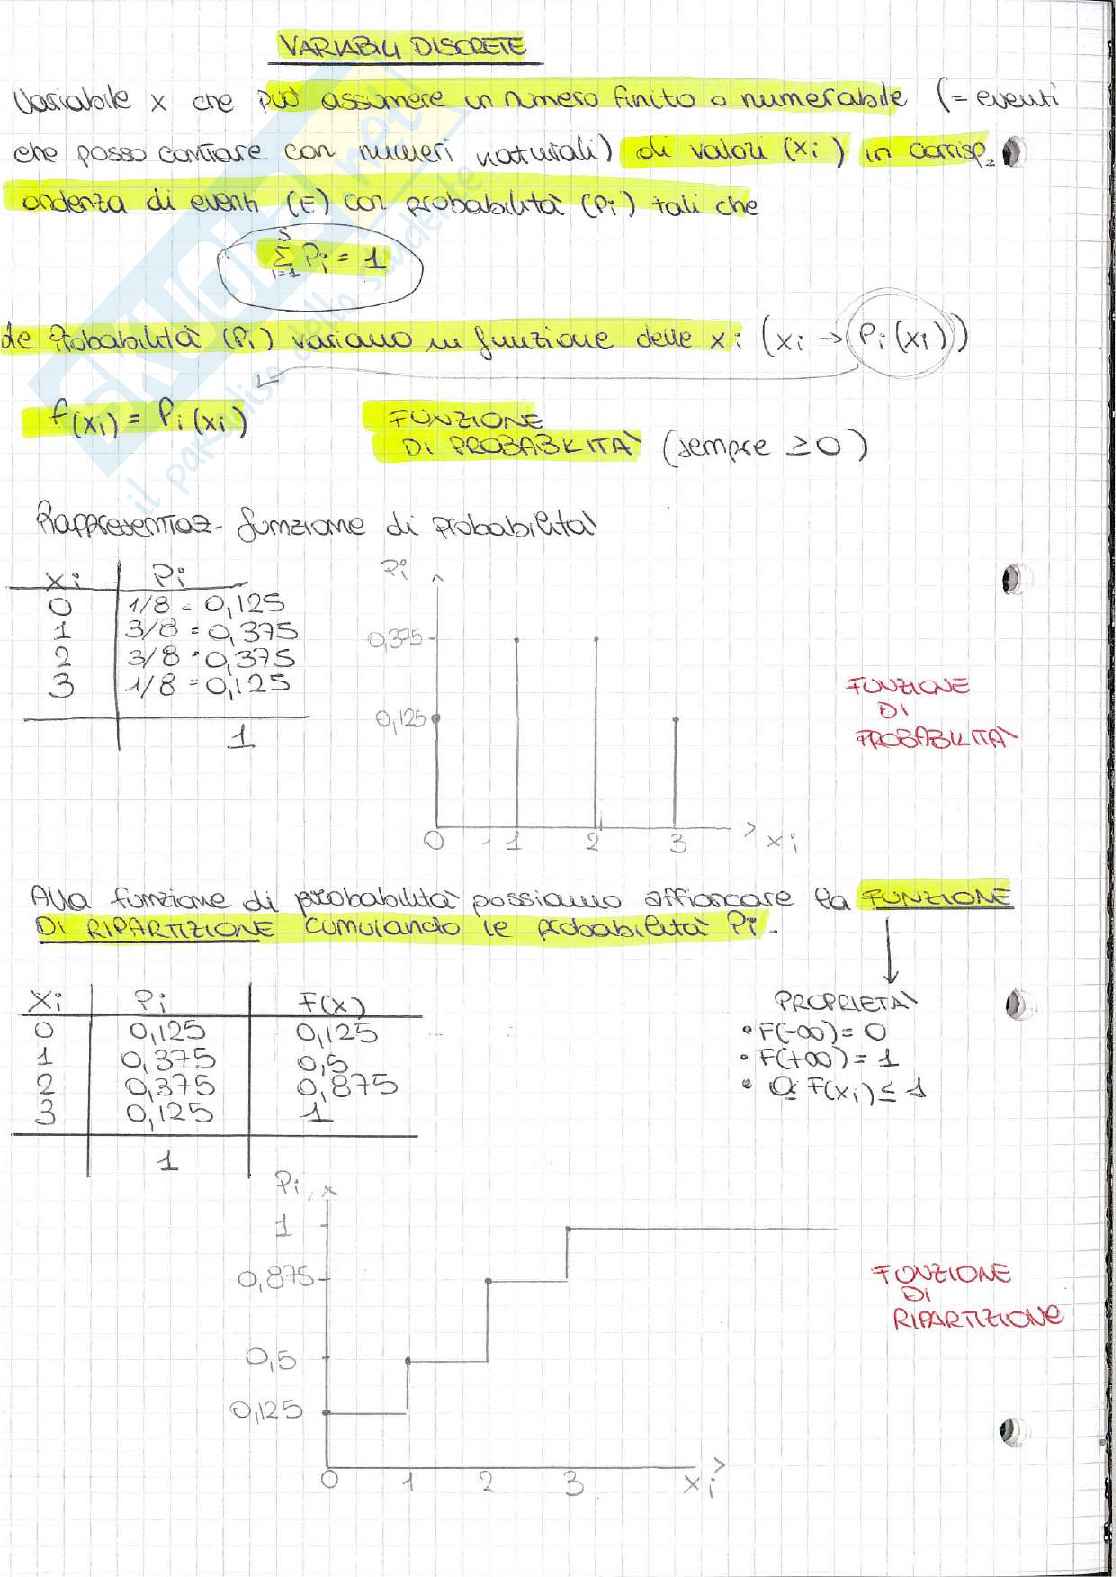 VARIABILI DISCRETE
Variabile x che può assumere un numero finito o numerabile (= eventi
che posso contare con numeri naturali) di valori (xi) in corrisp-
ondenza di eventi (E) con probabilità (Pi) tali che
s
Σ Pi = 1
i=1
Le Probabilità (Pi) variano in funzione delle xi (xi → Pi(xi))
f(xi) = Pi(xi)
FUNZIONE
DI PROBABILITÀ (sempre ≥0)
Rappresentaz. funzione di probabilità
xi Pi
0 1/8 = 0,125
1 3/8 = 0,375
2 3/8 = 0,375
3 1/8 = 0,125
1
Pi
0,375
0,125
0 1 2 3 xi
FUNZIONE
DI
PROBABILITÀ
Alla funzione di probabilità possiamo affiancare la FUNZIONE
DI RIPARTIZIONE cumulando le probabilità Pi.
Xi Pi F(x)
0 0,125 0,125
1 0,375 0,5
2 0,375 0,875
3 0,125 1
1
PROPRIETÀ
• F(-∞) = 0
• F(+∞) = 1
• 0≤ F(xi) ≤ 1
Pi
1
0,875
0,5
0,125
0 1 2 3 xi
FUNZIONE
DI
RIPARTIZIONE